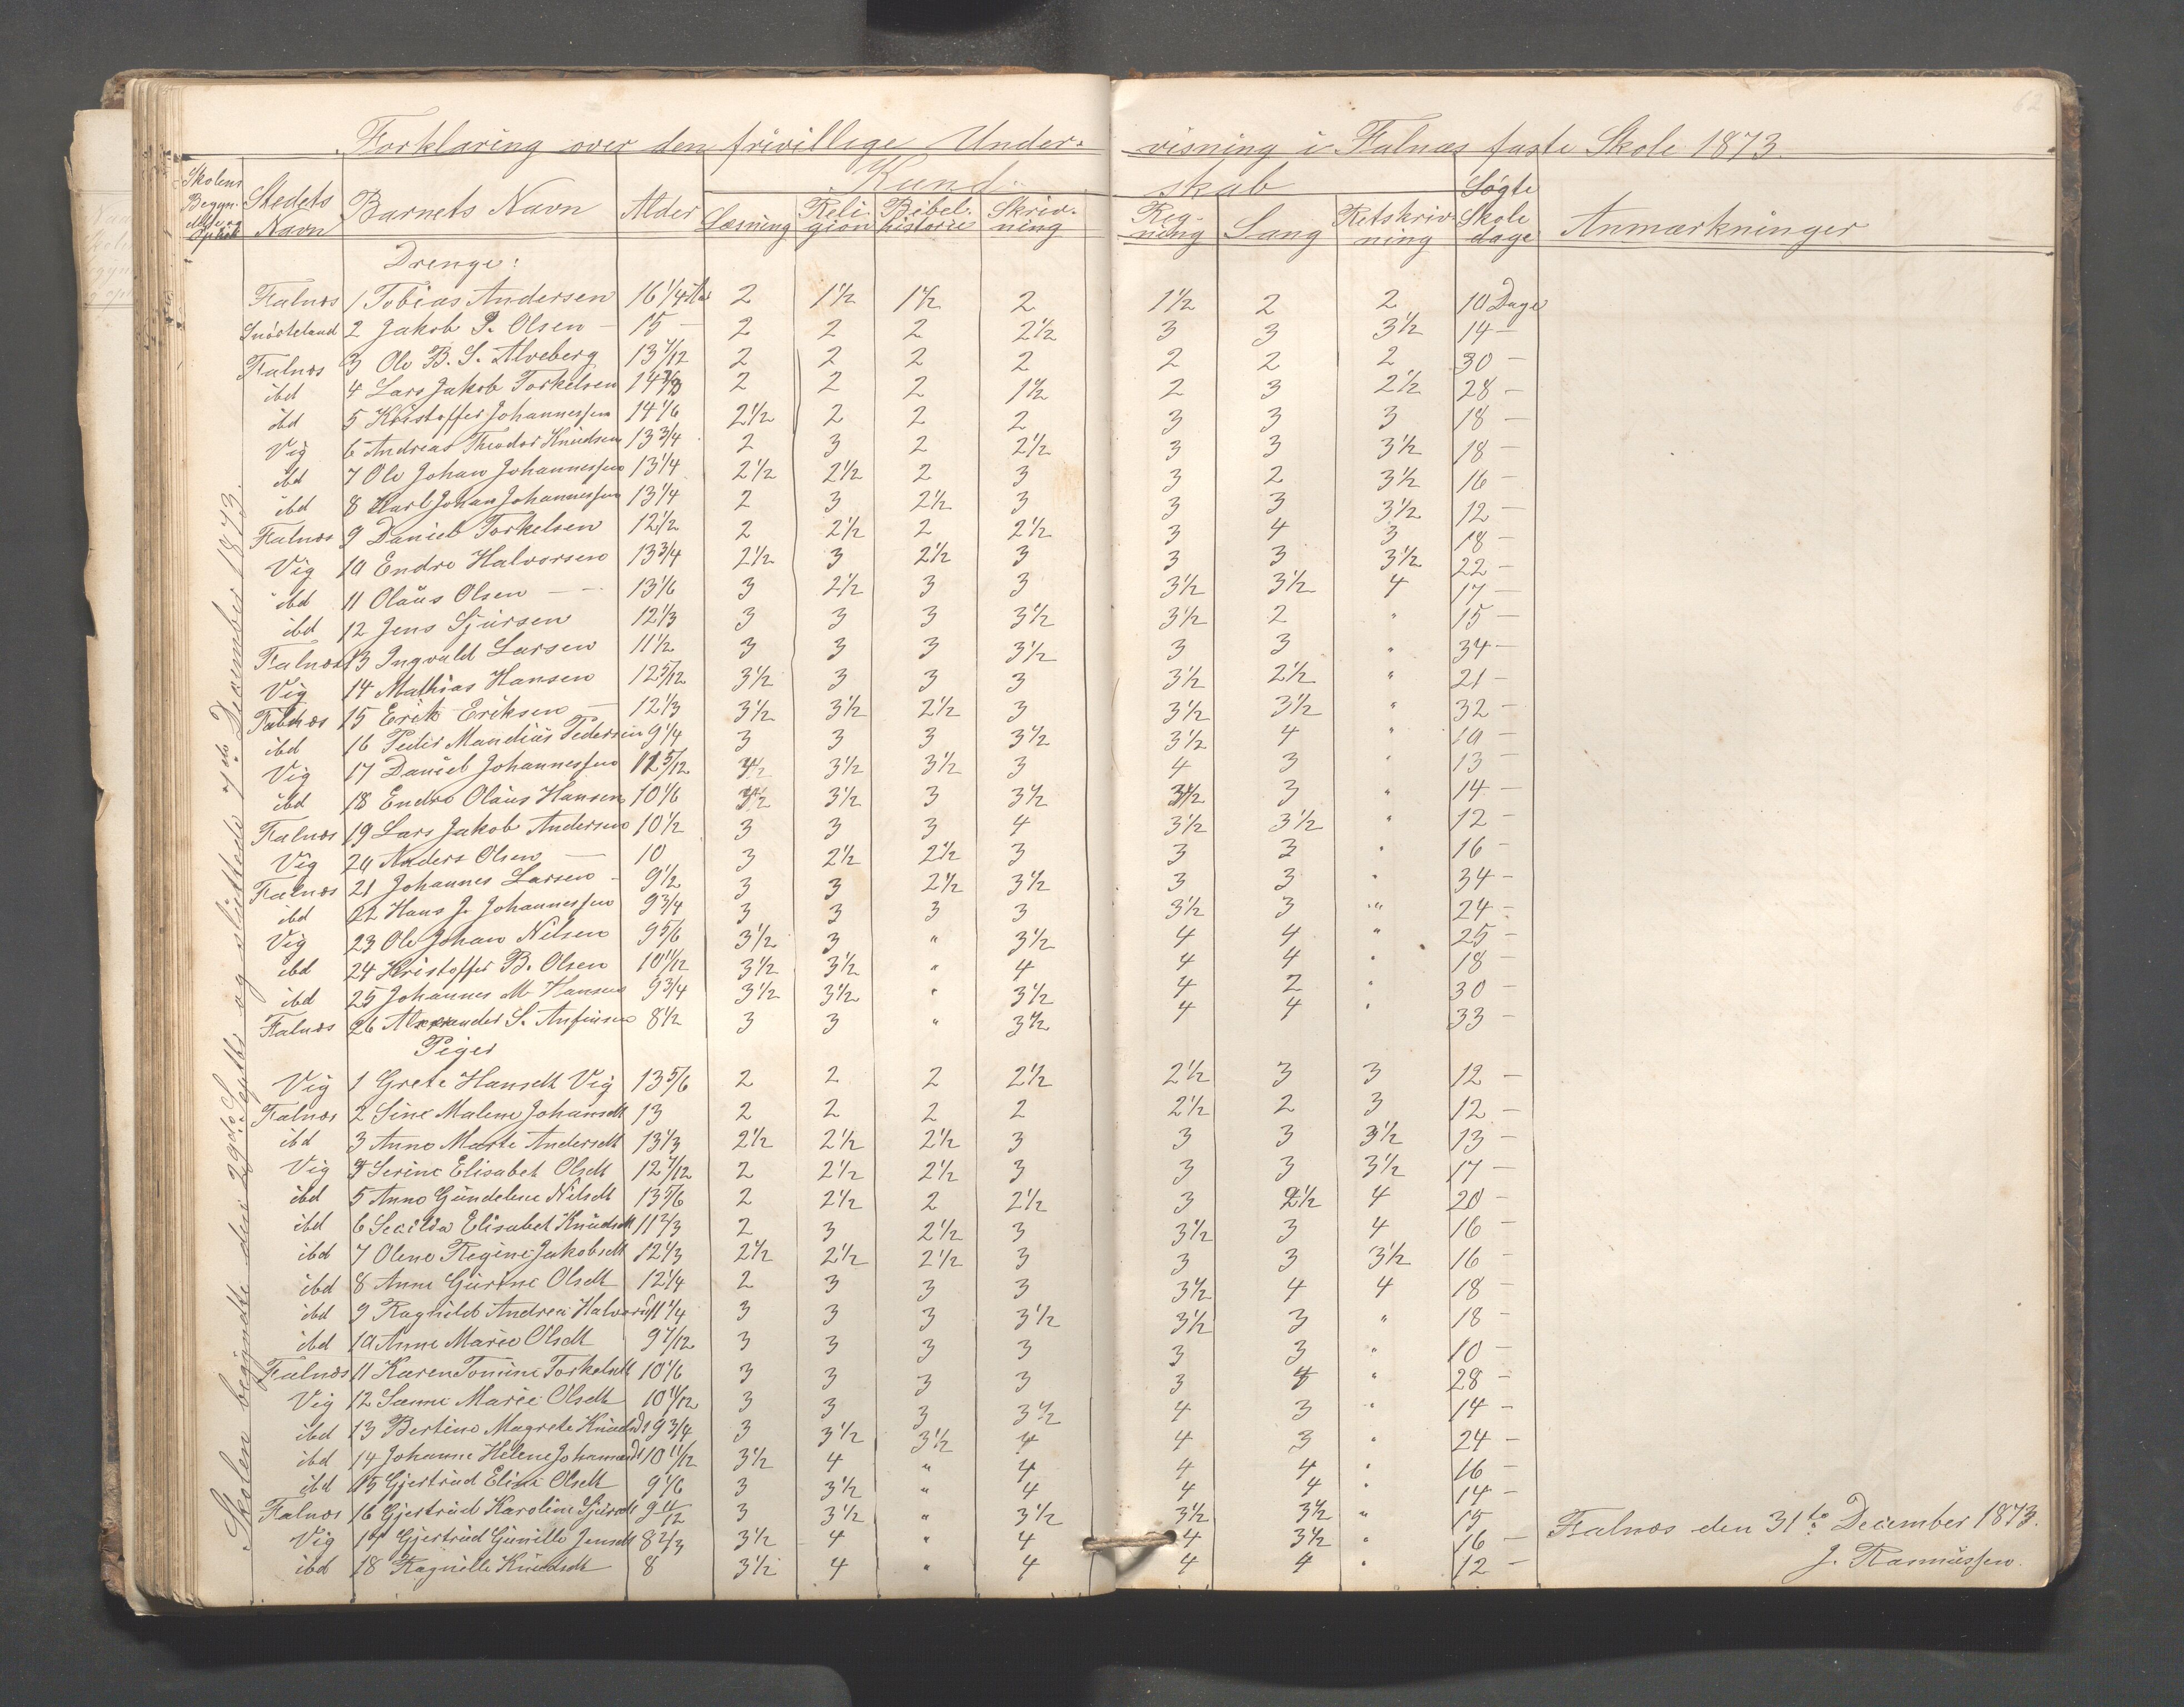 62
Forklaring over den frivillige Under- visning i Falnæs faste Skole 1873.
Skolens Begyn- delse og Ophør | Stedets Navn | Barnets Navn | Alder | Kund- skab | Søgte Skole dage | Anmærkninger
Læsning | Reli- gion | Bibel- historie | Skriv- ning | Reg- ning | Sang | Retskriv- ning
Skolen begyndte den 29de Septbr og sluttede 7de December 1873.
Drenge:
Falnæs 1 Tobias Andersen 16 1/4 2 1½ 1½ 2 1½ 2 2 10 Dage
Snørteland 2 Jakob P. Olsen – 15 – 2 2 2 2½ 3 3 3½ 14 –
Falnæs 3 Ole B. S. Alveberg 13 7/12 2 2 2 2 2 2 2 30 –
ibd 4 Lars Jakob Torkelsen 14 2 2 2 1½ 2 3 2½ 28 –
ibd 5 Kristoffer Johannessen 14 1/6 2½ 2 2 2 3 3 3 18 –
Vig 6 Andreas Theodor Knudsen 13 3/4 2 3 2 2½ 3 3 3½ 18 –
ibd 7 Ole Johan Johannessen 13 1/4 2½ 2½ 2 3 3 2 3½ 16 –
ibd 8 Karl Johan Johannessen 13 1/4 2 3 2½ 3 3 3 3½ 12 –
Falnæs 9 Daniel Torkelsen 12 1/2 2 2½ 2 2½ 3 4 3 18 –
Vig 10 Endre Halvorsen 13 3/4 2½ 3 2½ 3 3 3 3½ 22 –
ibd 11 Olaus Olsen – – 13 1/6 3 2½ 3 3 3½ 3½ 4 17 –
ibd 12 Jens Sjursen 12 1/3 3 3 3 3½ 3½ 2 " 15 –
Falnæs 13 Ingvald Larsen 11 1/2 3 3 3 3½ 3 3 " 34 –
Vig 14 Mathias Hansen 12 5/12 3½ 3 3 3 3½ 2½ " 21 –
Falnæs 15 Erik Eriksen – 12 1/3 3½ 3½ 2½ 3 3½ 3½ " 32 –
ibd 16 Peder Mandius Pedersen 9 1/4 3 3 3 3½ 3½ 4 " 10 –
Vig 17 Daniel Johannessen 12 5/12 3½ 3½ 3 4 3 " 13 –
ibd 18 Endre Olaus Hansen 10 1/6 3½ 3½ 3 3½ 3½ 3 " 14 –
Falnæs 19 Lars Jakob Andersen 10 1/2 3 3 3 4 3½ 3½ " 12 –
Vig 20 Anders Olsen – 10 3 2½ 2½ 3 3 3 " 16 –
Falnæs 21 Johannes Larsen – 9 1/2 3 3 2½ 3½ 3 3 " 34 –
ibd 22 Hans J. Johannessen 9 3/4 3 3 3 3 3½ 3 " 24 –
Vig 23 Ole Johan Nilsen 9 5/6 3½ 3 " 3½ 4 4 " 25 –
ibd 24 Kristoffer B. Olsen 10 11/12 3½ 3½ " 4 4 4 " 18 –
ibd 25 Johannes M. Hansen 9 3/4 3½ 3½ " 3½ 4 2 " 30 –
Falnæs 26 Alexander S. Anfinsen 8 1/2 3 3 " 3½ 4 4 " 33 –
Piger
Vig 1 Grete Hansdt Vig 13 5/6 2 2 2 2½ 2½ 3 3 12 –
Falnæs 2 Sine Malene Johansdt 13 2 2 2 2 2½ 2 3 12 –
ibd 3 Anne Marte Andersdt 13 1/3 2½ 2½ 2½ 3 3 3 3½ 13 –
Vig 4 Serine Elisabet Olsdt 12 7/12 2 2½ 2½ 3 3 3 3½ 17 –
ibd 5 Anne Gundeline Nilsdt 13 5/6 2 2½ 2 2½ 3 2½ 4 20 –
ibd 6 Secilia Elisabet Knudsdt 11 2/3 2 3 2½ 3 3½ 3 4 16 –
ibd 7 Olene Regine Jakobsdt 12 1/3 2½ 2½ 2½ 3 3 3 3½ 16 –
ibd 8 Anne Gurine Olsdt 12 1/4 2 3 3 3 3½ 4 4 18 –
ibd 9 Ragnild Andrea Halvorsdt 11 1/4 3 3 3 3½ 3½ 3 " 18 –
ibd 10 Anne Marie Olsdt 9 7/12 3 3 3 3 3 3 " 10 –
Falnæs 11 Karen Tomine Torkelsdt 10 1/6 3 3 3 3 3 4 " 28 –
Vig 12 Sanne Marie Olsdt 10 11/12 3 3 3 3½ 4 3 " 14 –
ibd 13 Bertine Magrete Knudsdt 9 3/4 3 3½ 3½ 4 4 3 " 24 –
ibd 14 Johanne Helene Johannesdt 10 11/12 3½ 4 " 4 4 4 " 16 –
ibd 15 Gjertrud Elisa Olsdt 9 1/6 3 3½ " 4 4 4 " 14 –
Falnæs 16 Gjertrud Karoline Sjursdt 9 11/12 3 3½ " 3½ 3½ 3½ " 15
Vig 17 Gjertrud Gunille Jensdt 8 2/3 3½ 4 " 4 4 3½ " 16 –
ibd 18 Ragnille Knudsdt 8 3½ 4 " 4 4 4 " 12 –
Falnæs den 31te December 1873.
J. Rasmussen.